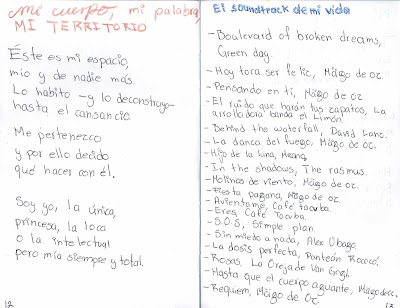 mi cuerpo, mi palabra,
MI TERRITORIO
Éste es mi espacio,
mío y de nadie más.
Lo habito -y lo deconstruyo-
hasta el cansancio.
Me pertenezco
y por ello decido
qué hacer con él.
Soy yo, la única,
princesa, la loca
o la intelectual
pero mía siempre y total.
12
El soundtrack de mi vida
- Boulevard of broken dreams,
Green day.
- Hoy toca ser feliz, Mägo de oz.
- Pensando en ti, Mägo de oz.
- El ruido que harán tus zapatos, La
arrolladora banda el Limón.
- Behind the waterfall, David Lanz.
- La danza del fuego, Mägo de oz.
- Hijo de la luna,
- In the shadows, The rasmus.
- Molinos de viento, Mägo de oz.
- Fiesta pagana, Mägo de oz
- Aviéntame, Café tacvba
- Eres, Café Tacvba.
- S.O.S, Simple plan
- Sin miedo a nada, Alex Ubago.
- La dosis perfecta, Panteón Rococó.
- Rosas, La Oreja de Van Gogh.
- Hasta que el cuerpo aguante, Mägo de oz.
- Requiem, Mägo de Oz
13